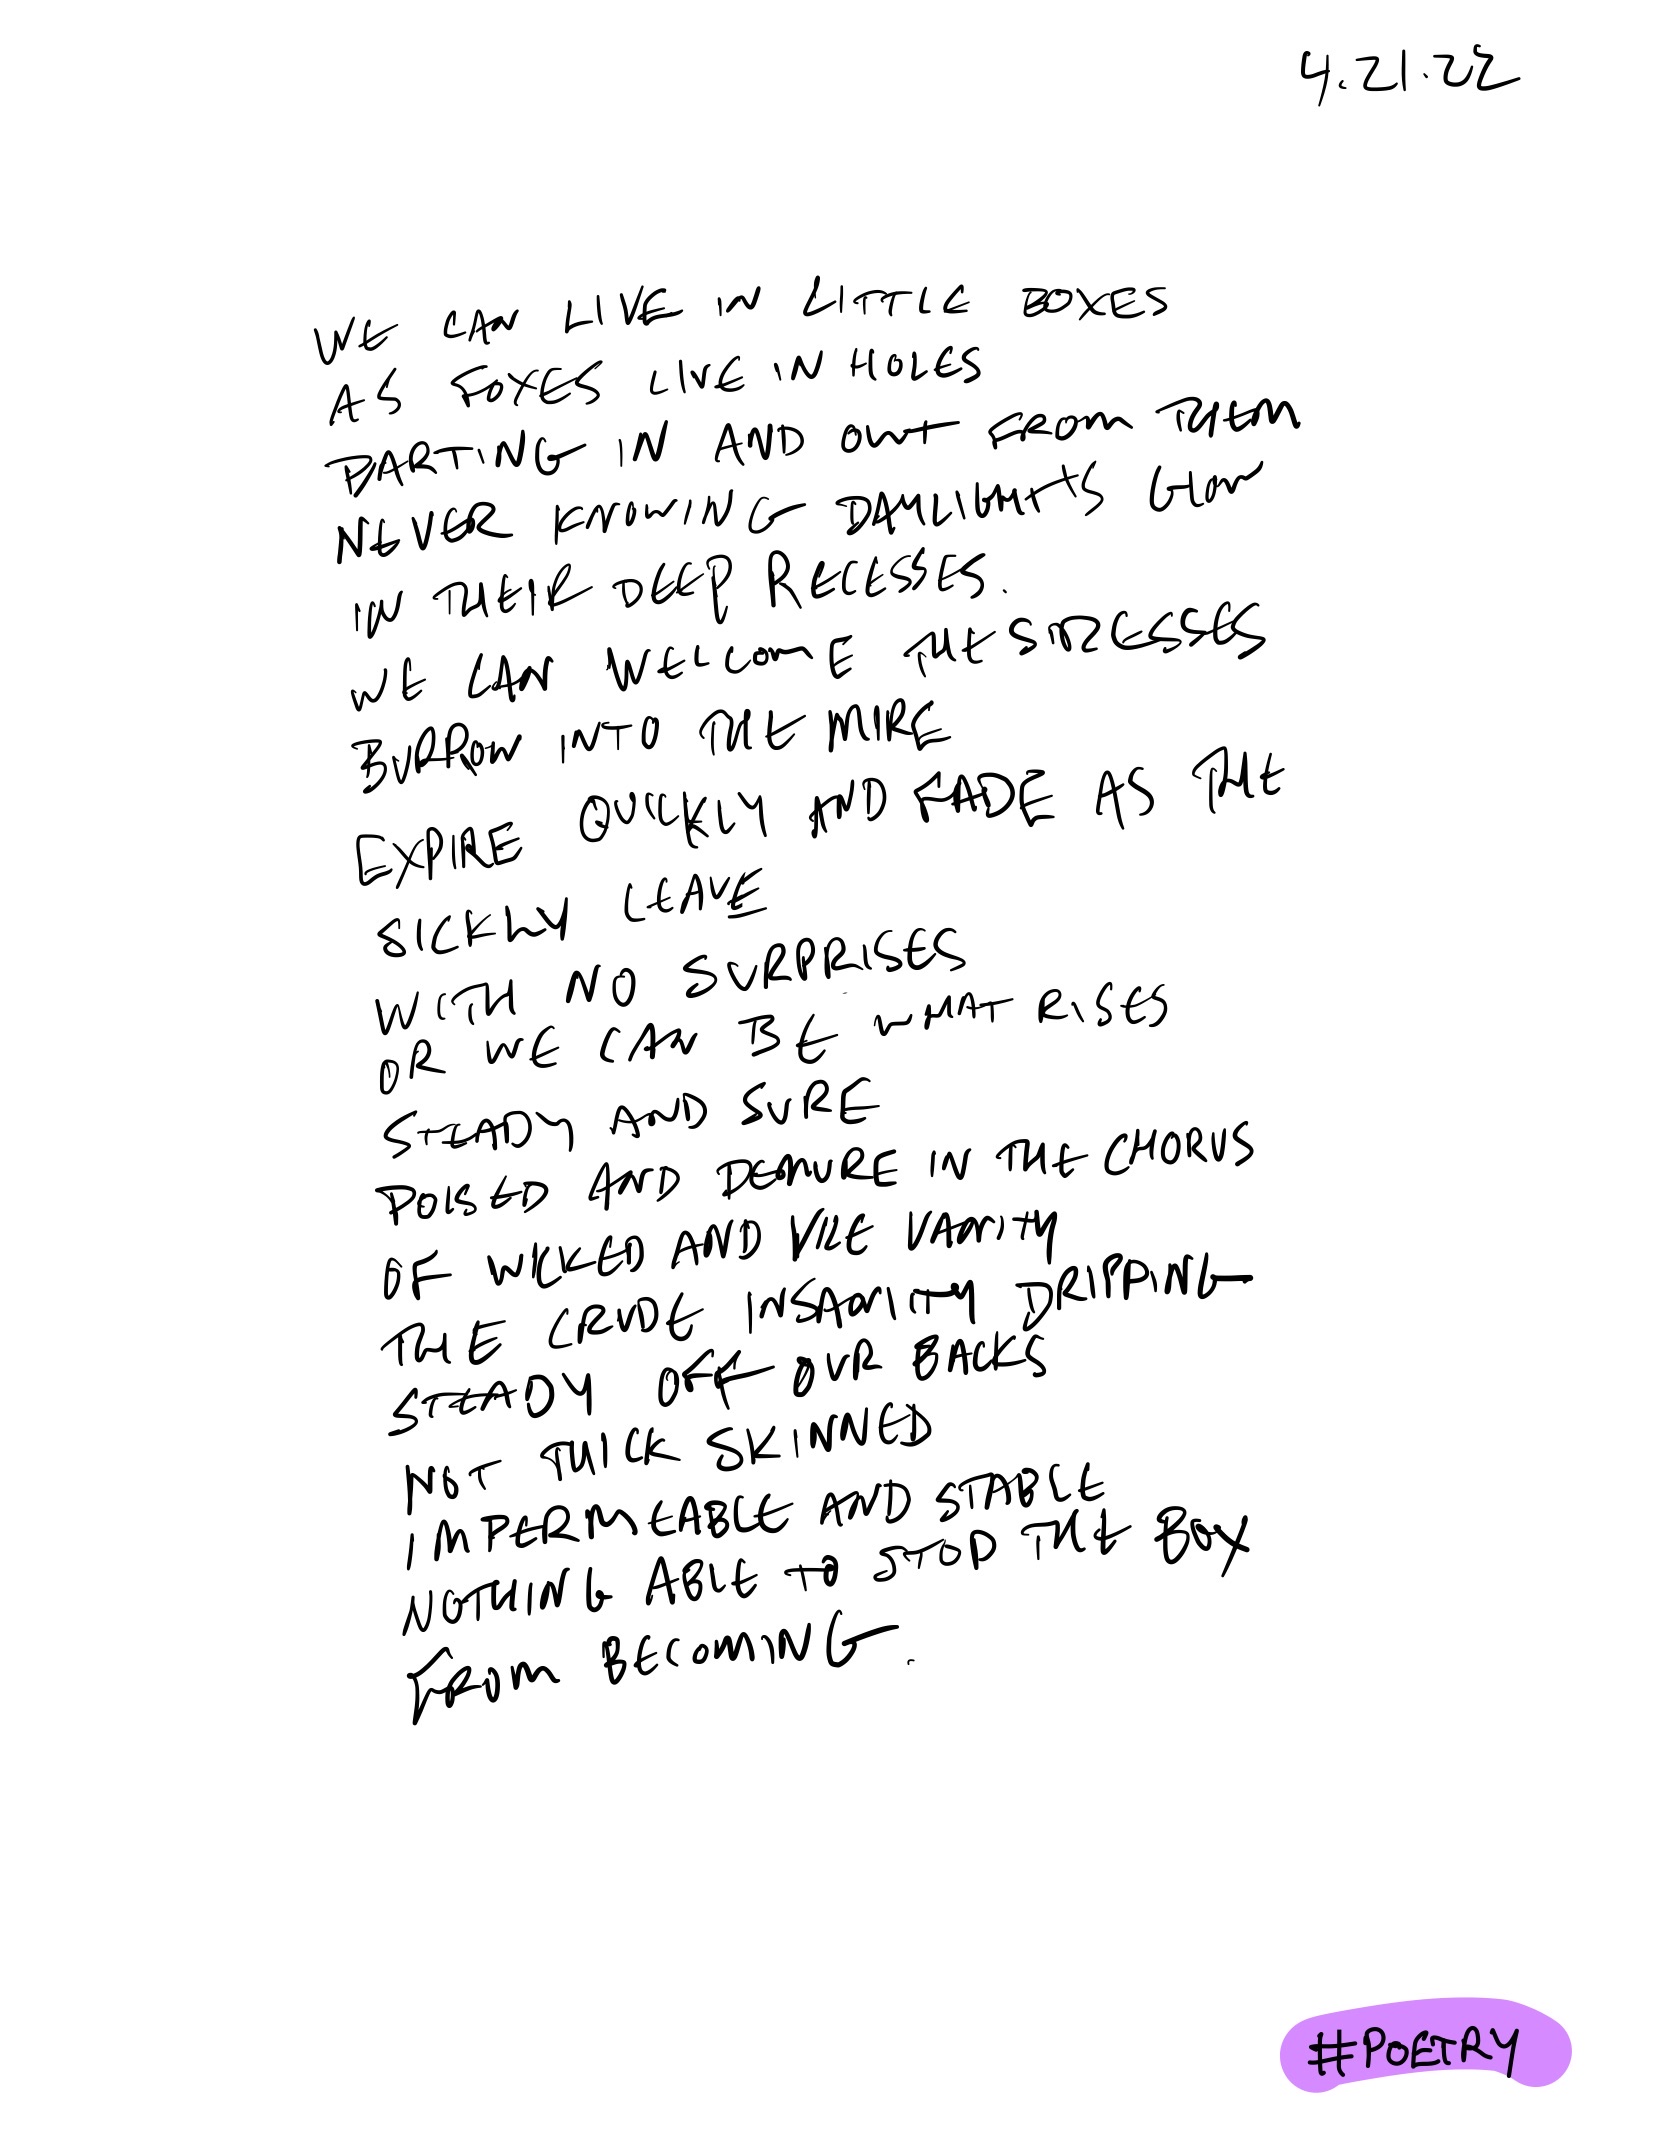 4.21.22
WE CAN LIVE IN LITTLE BOXES
AS FOXES LIVE IN HOLES
DARTING IN AND OUT FROM THEM
NEVER KNOWING DAYLIGHTS GLOW
IN THEIR DEEP RECESSES.
WE CAN WELCOME THE STRESSES
BURROW INTO THE MIRE
EXPIRE QUICKLY AND FADE AS THE
SICKLY LEAVE
WITH NO SURPRISES
OR WE CAN BE WHAT RISES
STEADY AND SURE
POISED AND DEMURE IN THE CHORUS
OF WICKED AND VILE VANITY
THE CRUDE INSANITY DRIPPING
STEADY OFF OUR BACKS
NOT THICK SKINNED
IMPERMEABLE AND STABLE
NOTHING ABLE TO STOP THE BOX
FROM BECOMING.
#POETRY